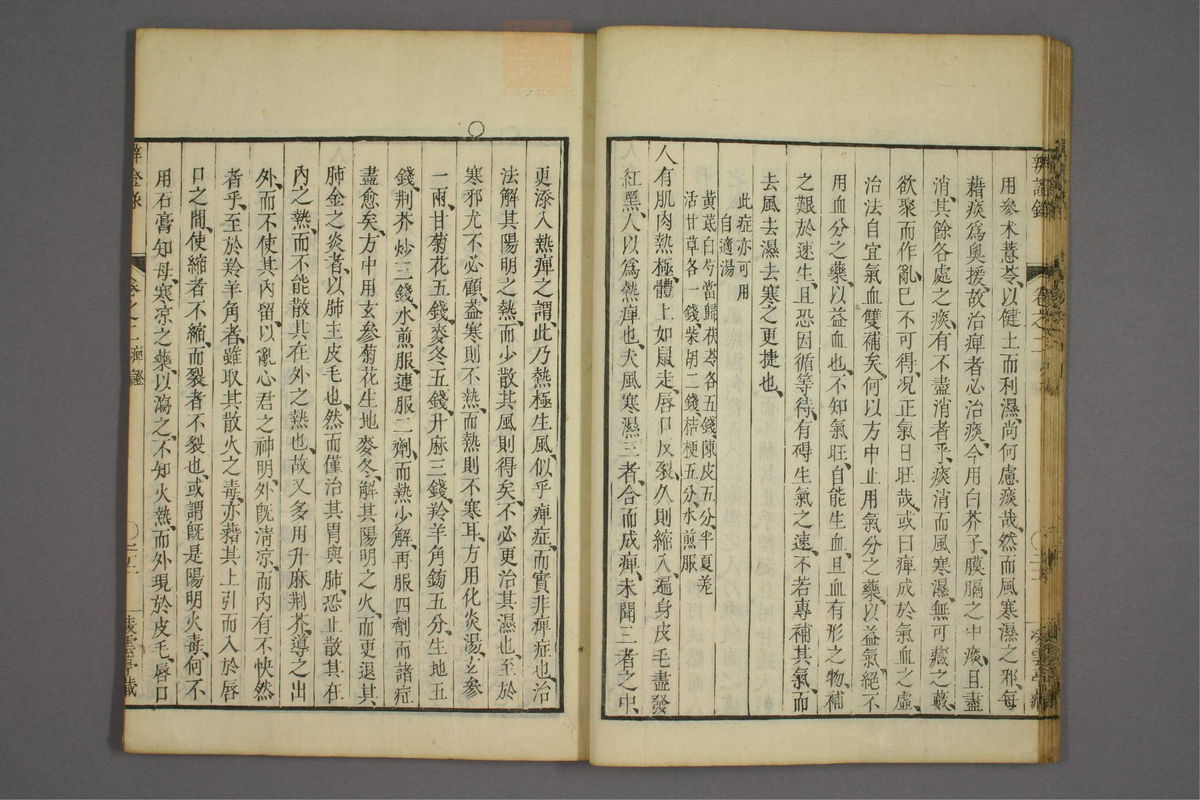 用參术薏苓以健土而利濕尚何慮痰哉然而風寒濕之邪每
藉痰爲奥援故治痺者必治痰今用白芥子膜膈之中痰且盡
消其餘各處之痰有不盡消者乎痰消而風寒濕無可藏之藪
欲聚而作亂已不可得况正氣日旺哉或曰痺成於氣血之虛
治法自宜氣血雙補矣何以方中止用氣分之藥以益氣絕不
用血分之藥以益血也不知氣旺自能生血且血有形之物補
之艱於速生且恐因循等待有碍生氣之速不若專補其氣而
去風去濕去寒之更捷也
此症亦可用
自適湯
黄茋白芍當歸茯苓各五錢陳皮五分半夏羗
活甘草各一錢柴胡二錢桔梗五分水煎服
人有肌肉熱極體上如鼠走唇口反裂久則縮入遍身皮毛盡發
紅黑人以爲熱痺也夫風寒濕三者合而成痺未聞三者之中
辨證錄
卷之二
更添入熱痺之謂此乃熱極生風似乎痺症而實非痺症也治
法解其陽明之熱而少散其風則得矣不必更治其濕也至於
寒邪尤不必顧葢寒則不熱而熱則不寒耳方用化炎湯玄參
一兩甘菊花五錢麥冬五錢升麻三錢羚羊角鎊五分生地五
錢荆芥炒三錢水煎服連服二劑而熱少解再服四劑而諸症
盡愈矣方中用玄參菊花生地麥冬解其陽明之火而更退其
肺金之炎者以肺主皮毛也然而僅治其胃與肺恐止散其在
內之熱而不能散其在外之熱也故又多用升麻荆芥導之出
外而不使其內留以亂心君之神明外旣清凉而內有不快然
者乎至於羚羊角者雖取其散火之毒亦藉其上引而入於唇
口之間使縮者不縮而裂者不裂也或謂旣是陽明火毒何不
用石膏知母寒凉之藥以瀉之不知火熱而外現於皮毛唇口
卷之二